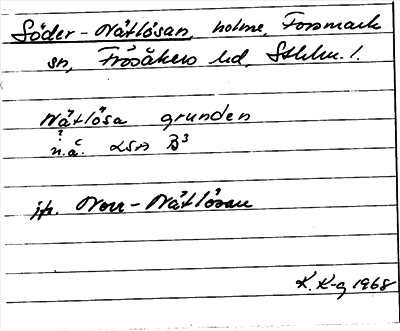 Söder-Nåtlösan, holme, Forsmark
sn, Frösåkers hd, Sthlm. l.
Nåtlösa grunden
n.å. LSA B³
jfr. Norr-Nåtlösan
K. K-g 1968